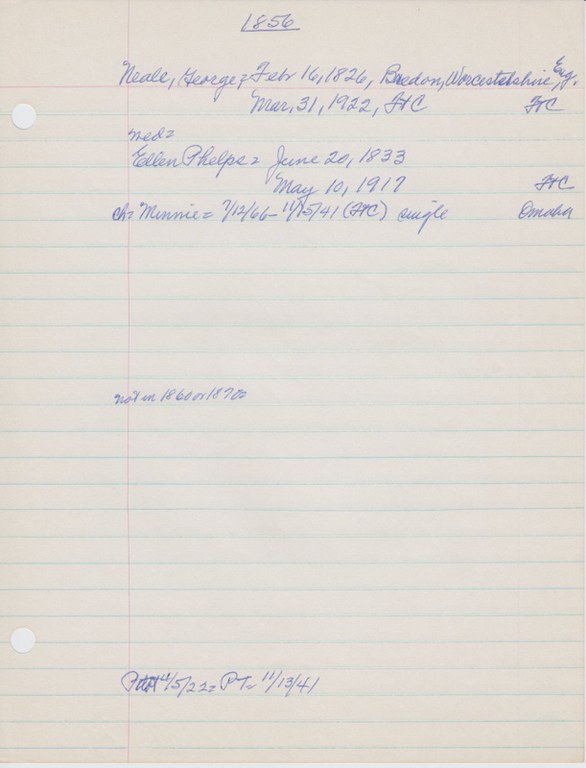 1856
Neale, George = Feb 16, 1826, Bredon, Worcestershire, Eng.
Mar, 31, 1922, FtC FtC
med =
Ellen Phelps = June 20, 1833
May 10, 1917 FtC
ch = Minnie = 7/12/66 - 11/15/41 (FtC) single Omaha
not in 1860 or 1870
4/5/22 = PT - 11/13/41